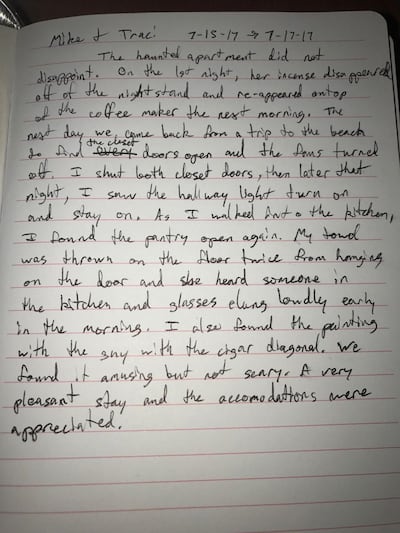 Mike & Traci 7-15-17 → 7-17-17
The haunted apartment did not
disappoint. On the 1st night, her incense disappeared
off of the nightstand and re-appeared ontop
of the coffee maker the next morning. The
next day we came back from a trip to the beach
to find the closet doors open and the fans turned
off. I shut both closet doors, then later that
night, I saw the hallway light turn on
and stay on. As I walked into the kitchen,
I found the pantry open again. My towel
was thrown on the floor twice from hanging
on the door and she heard someone in
the kitchen and glasses clang loudly early
in the morning. I also found the painting
with the guy with the cigar diagonal. We
found it amusing but not scary. A very
pleasant stay and the accomodations were
appreciated.